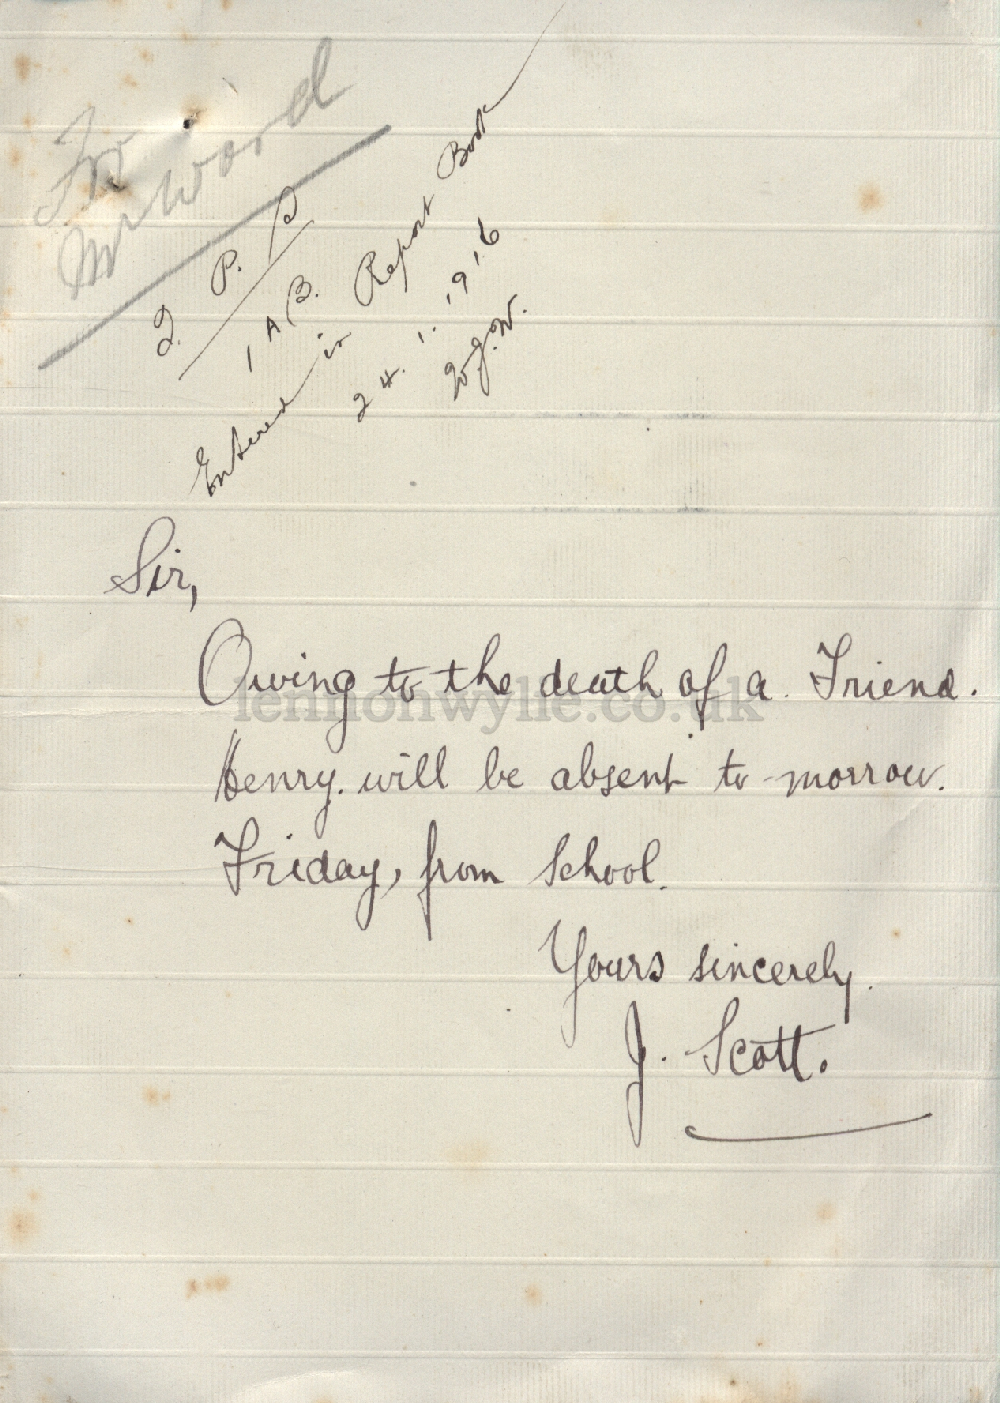 For
Mr Word
Q. P. S
1 A B.
Entered in Report Book
24.1.1916
W.J.W.
Sir,
Owing to the death of a Friend.
Henry. will be absent to-morrow.
Friday, from School.
Yours sincerely.
J. Scott.
lennonwylie.co.uk